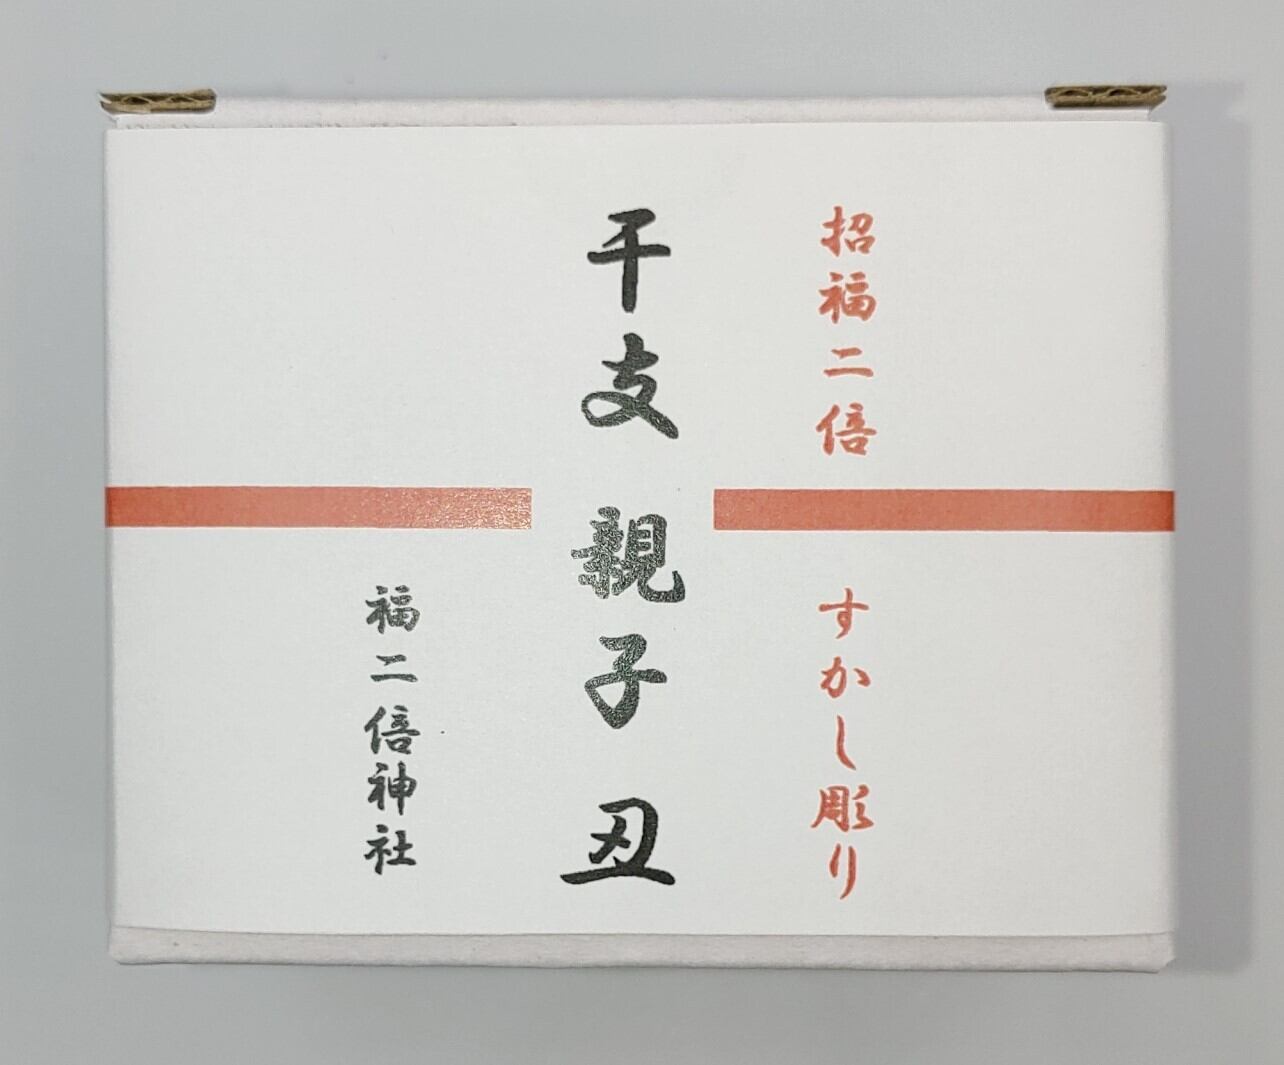 招福二倍
すかし彫り
干支 親子 丑
福二倍神社